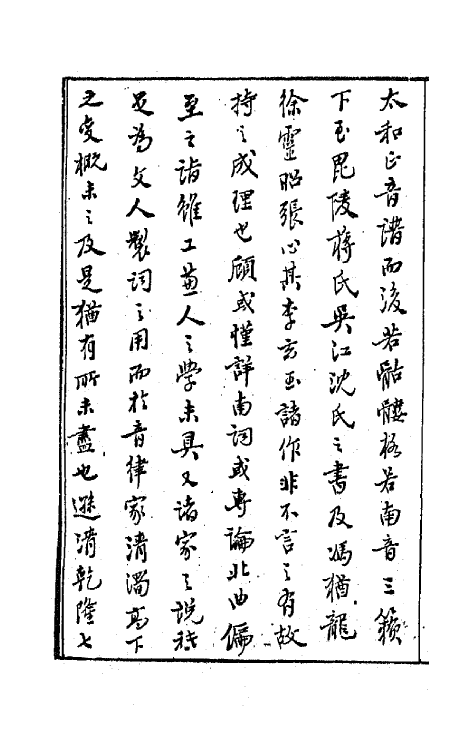 太和正音譜而後若骷髏格若南音三籟
下至毘陵蔣氏吳江沈氏之書及馮猶龍
徐靈昭張心其李玄玉諸作非不言之有故
持之成理也顧或僅詳南詞或專論北曲偏
至之詣雖工兼人之學未具又諸家之說祗
足為文人製詞之用而於音律家清濁高下
之變概未之及是猶有所未盡也遜清乾隆七